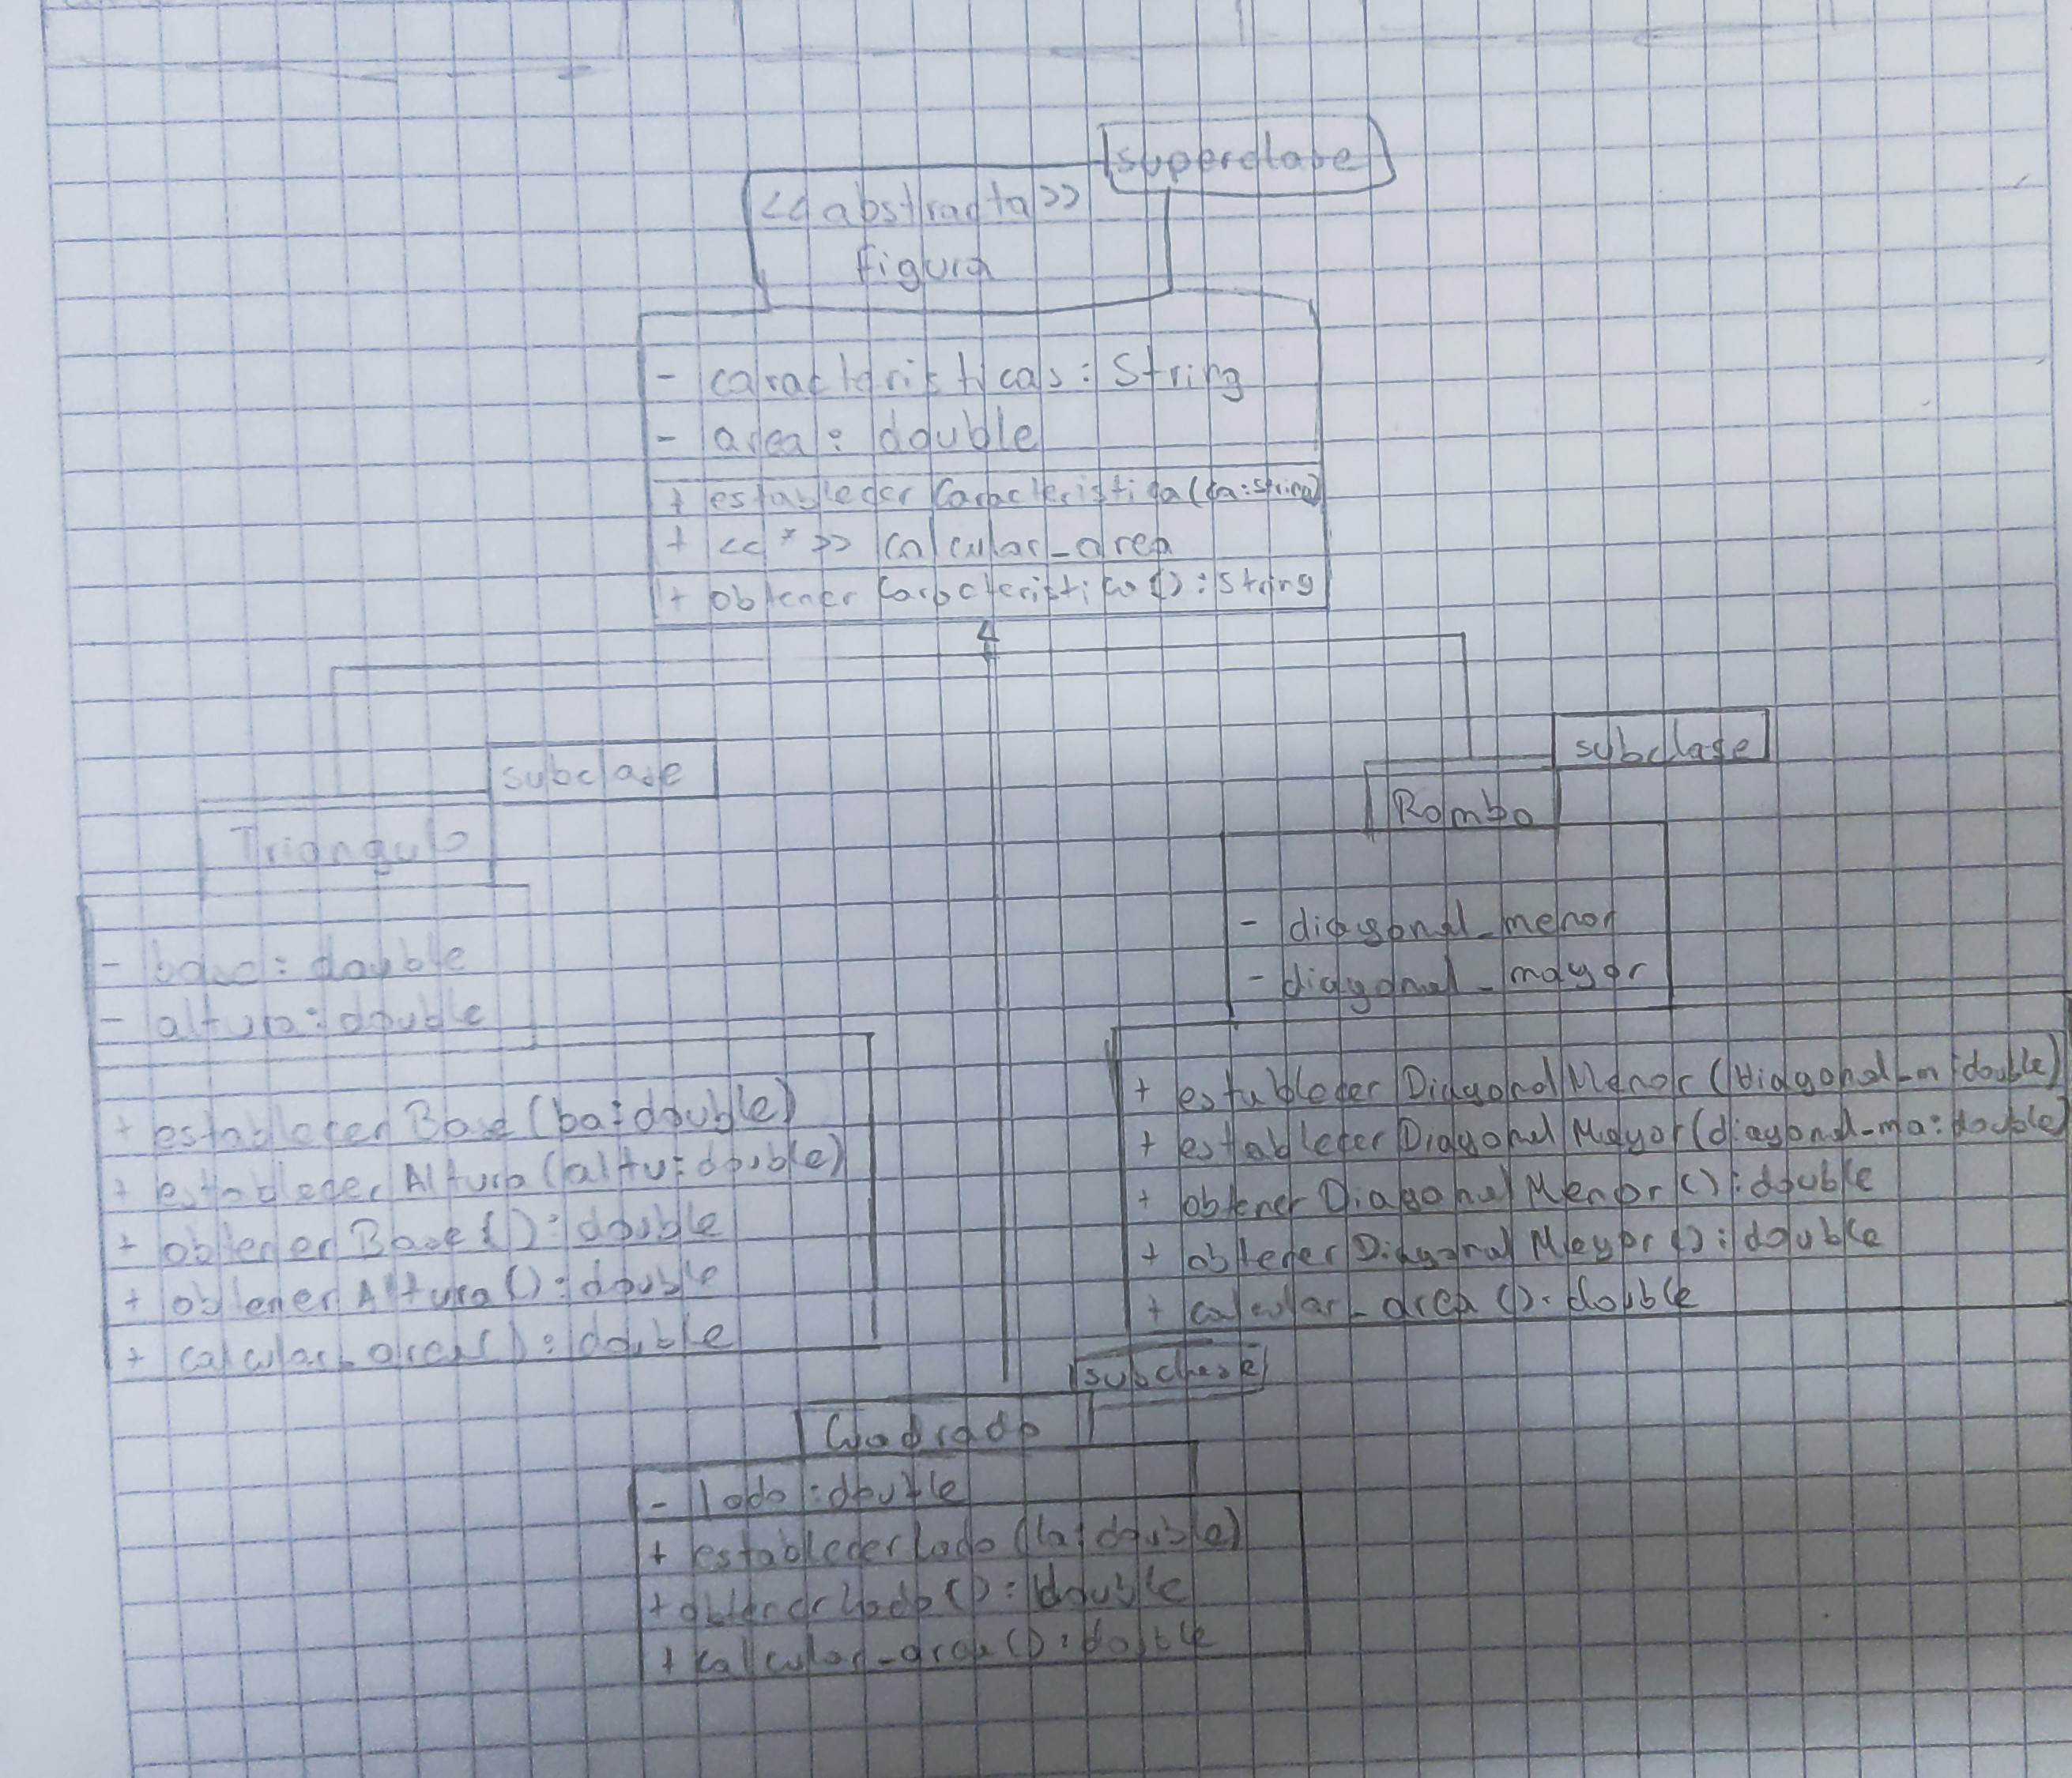 superclase
<<abstracta>>
figura
- caracteristicas: String
- area: double
+ establecer Caracteristica(ca: String)
+ <<*>> calcular_area
+ obtener Caracteristica(): String
subclase
Triangulo
- base: double
- altura: double
+ establecer Base (ba: double)
+ establecer Altura (altu: double)
+ obtener Base (): double
+ obtener Altura (): double
+ calcular_area(): double
subclase
Rombo
- diagonal_menor
- diagonal_mayor
+ establecer Diagonal Menor (diagonal_m: double)
+ establecer Diagonal Mayor (diagonal_ma: double)
+ obtener Diagonal Menor (): double
+ obtener Diagonal Mayor (): double
+ calcular_area (): double
subclase
Cuadrado
- lado: double
+ establecer Lado (la: double)
+ obtener Lado (): double
+ calcular_area (): double